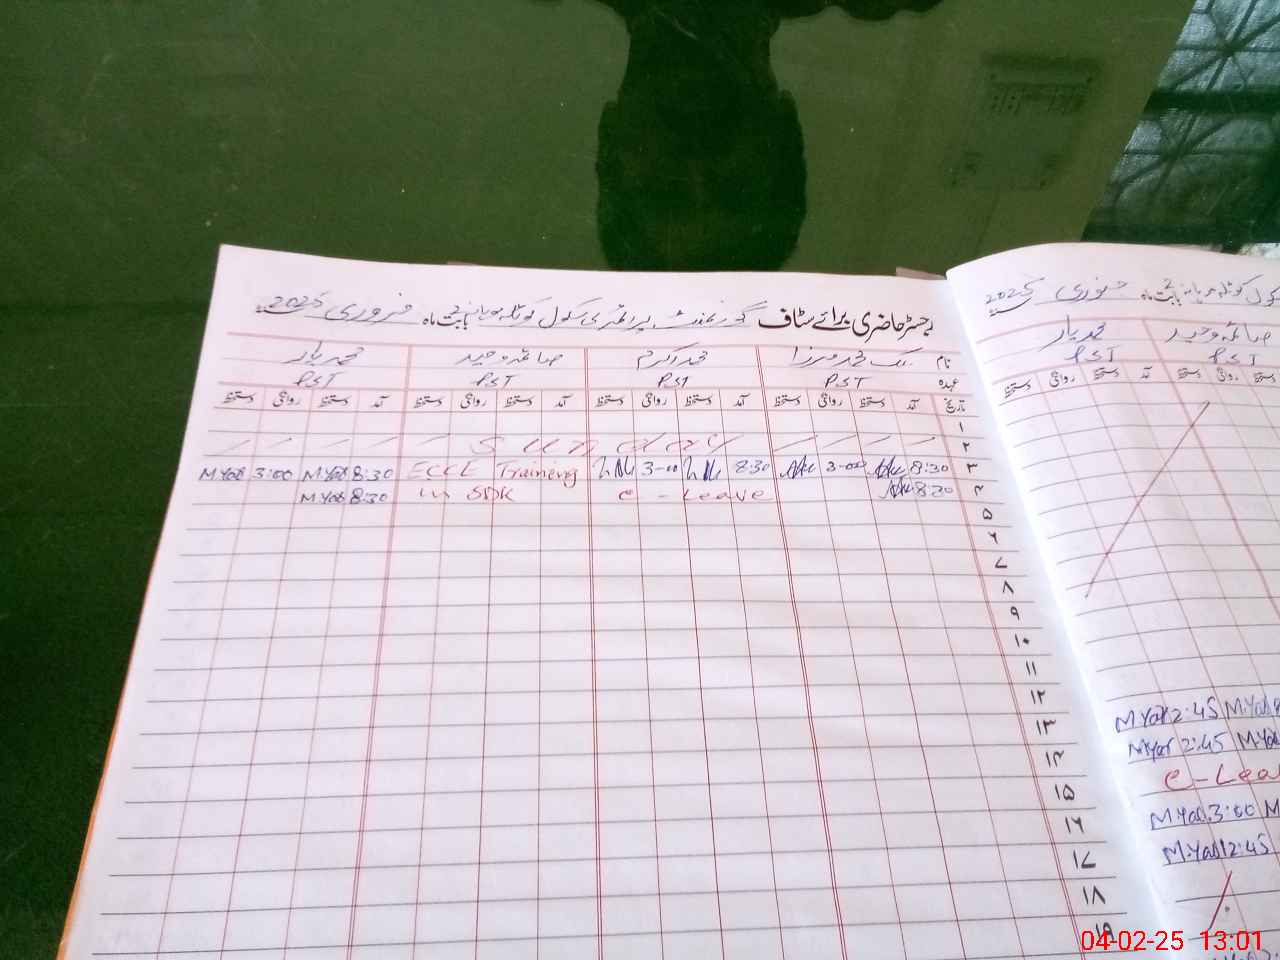 رجسٹر حاضری برائے سٹاف گورنمنٹ پرائمری سکول بابت ماہ فروری 2025
نام ملک محمد مرزا محمد اکرم صائمہ وحید محمد یار
عہدہ PST PST PST PST
تاریخ آمد دستخط روانگی دستخط آمد دستخط روانگی دستخط آمد دستخط روانگی دستخط آمد دستخط روانگی دستخط
۱
۲ Sunday
M Yar 3:00 M Yar 8:30 ECCE Traineng 3-00 8:30 3-00 8:30 ۳
M Yar 8:30 in SDK C-Leave 8:30 ۴
۵
۶
۷
۸
۹
۱۰
۱۱
۱۲
۱۳
۱۴
۱۵
۱۶
۱۷
۱۸
۱۹
بابت ماہ جنوری 2025
صائمہ وحید محمد یار
PST PST
دستخط روانگی دستخط آمد دستخط روانگی دستخط
M Yar 2:45 M Yar
M Yar 2:45 M Ya
C-Lea
M Yar 3:00 M
M Yar 2:45
04-02-25 13:01